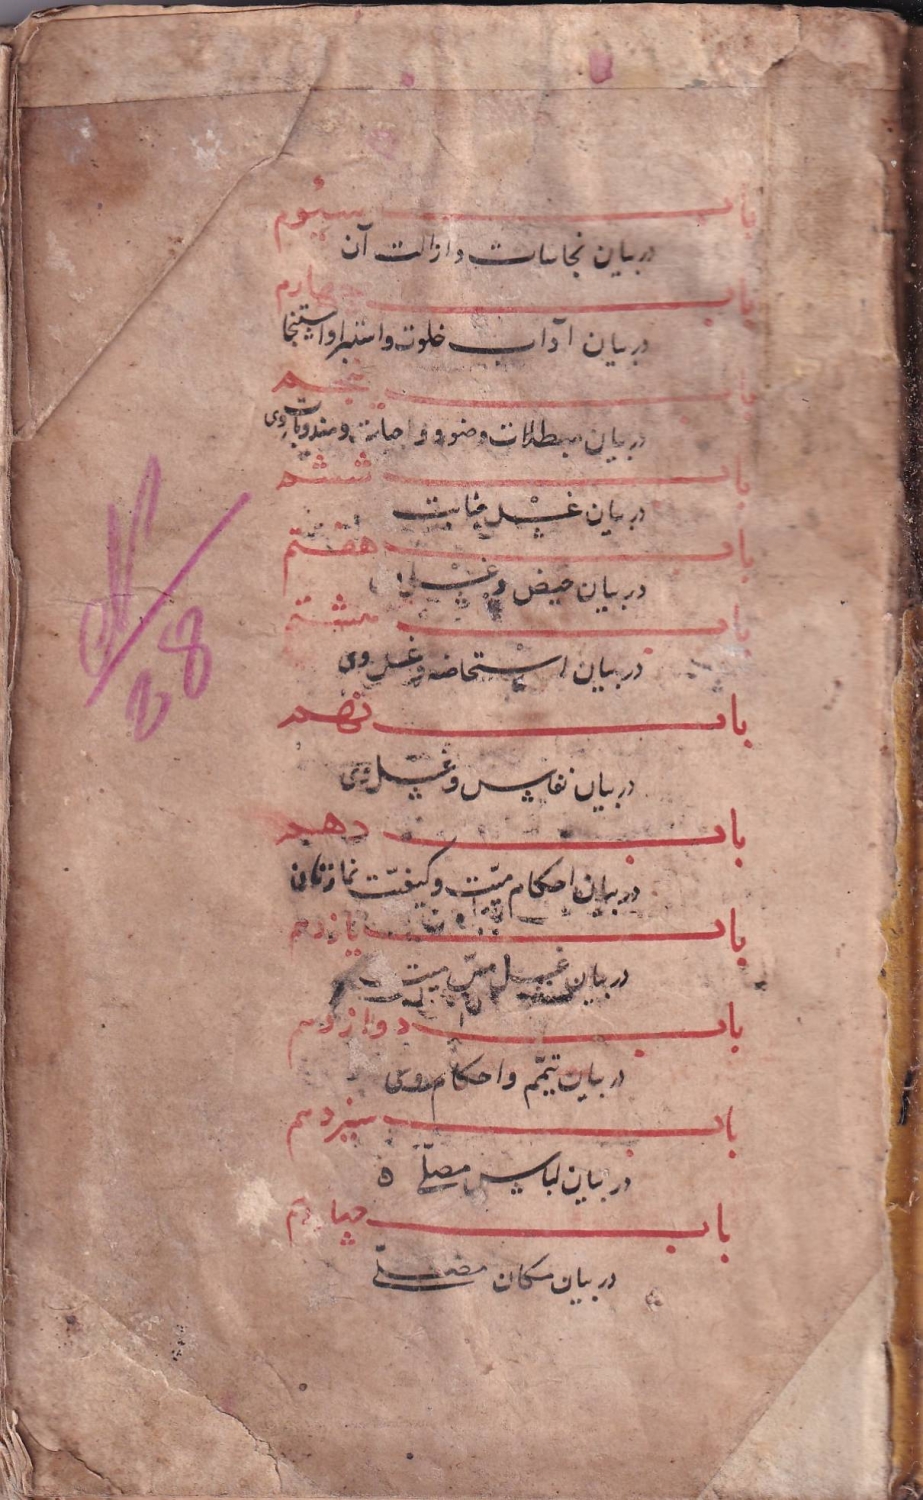 باب سیوم
در بیان نجاسات و ازالت آن
باب چهارم
در بیان آداب خلوت و استبرا و استنجا
باب پنجم
در بیان مبطلات وضو و واجبات و مندوبات وی
باب ششم
در بیان غسل جنابت
باب هفتم
در بیان حیض و غسل
باب هشتم
در بیان استحاضه و غسل وی
باب نهم
در بیان نفاس و غسل وی
باب دهم
در بیان احکام میت و کیفیت نماز
باب یازدهم
در بیان غسل مس میت
باب دوازدهم
در بیان تیمم و احکام وی
باب سیزدهم
در بیان لباس مصلّی ه
باب چهاردهم
در بیان مکان مصلّی
28